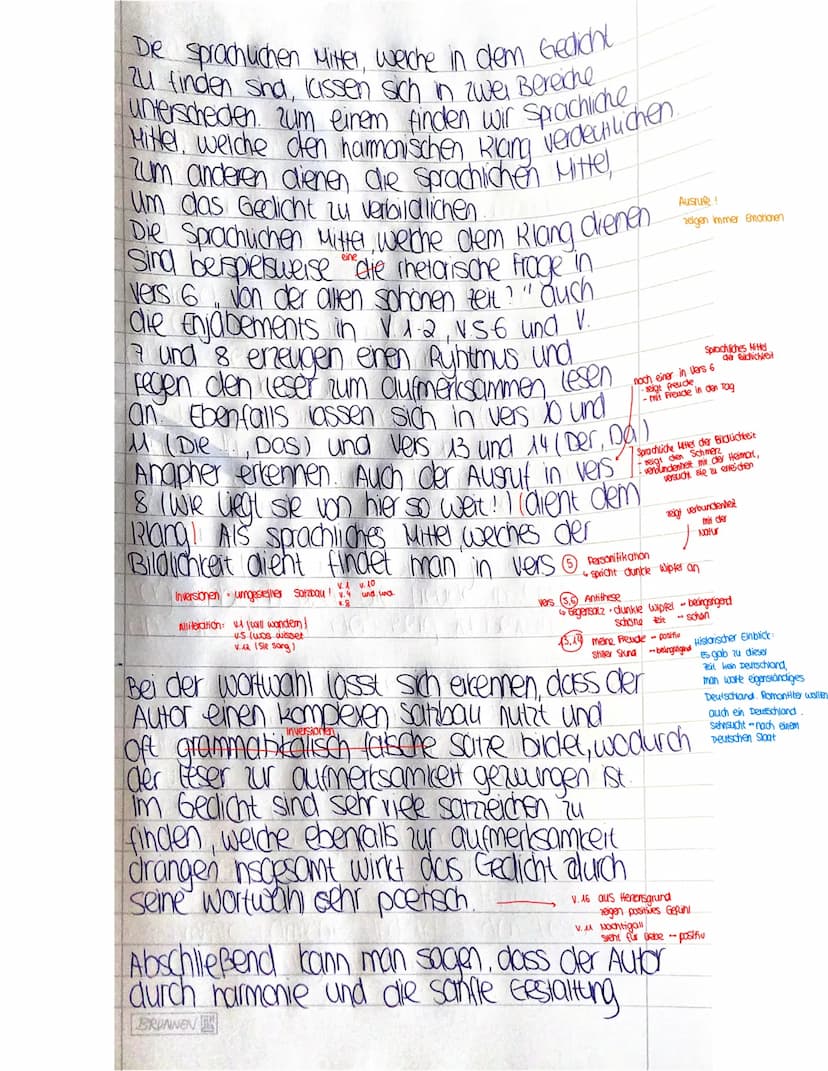 Die sprachlichen Mittel, welche in dem Gedicht
zu finden sind, lassen sich in zwei Bereiche
unterscheden. Zum einem finden wir Sprachliche
Mittel, welche den harmonischen Klang verdeutlichen.
Zum anderen dienen die Sprachlichen Mittel,
um das Gedicht zu verbildlichen.
Ausrufe!
zeigen immer Emotionen
Die Sprachlichen Mittel, welche dem Klang dienen
eine
Sind beispielsweise die rhetorische Frage in
Vers 6 "Von der alten schönen Zeit?" auch
die Enjabements in V.1-2, V 5 6 und V.
7 und 8 erzeugen einen Ryhtmus und
regen den Leser zum aufmerksammen lesen
an. Ebenfalls lassen sich in Vers 10 und
11 (Die.., Das) und Vers 13 und 14 (Der, Da)
Anapher erkennen. Auch der Ausruf in Vers
8 (Wie liegt sie von hier so weit!) (dient dem
Klang! Als sprachliches Mittel, welches der
Bildlichkeit dient findet man in Vers
Sprachliches Mittel
der Bildlichkeit
noch einer in Vers 6
- zeigt Freude
- mit Freude in den Tag
Sprachliche Mittel der Bildlichkeit
- zeigt den Schmerz
- verbundenheit mit der Heimat,
versucht sie zu erreichen
zeigt verbundenheit
mit der
Natur
5 Personifikation
↳ spricht dunkle Wipfel an
Inversionen - umgestellter Satzbau! V.1 V.10
V.4 und, und
V.8
Alliteration: V.1 (will wandern)
V.5 (was wisset
V.12 (Sie sang)
Vers 5,6 Antithese
↳ Gegensatz - dunkle Wipfel -- beängstigend
schöne Zeit -- schön
13,14 meine Freude -- positiv
stiller Stund -- beängstigend
Historischer Einblick:
Es gab zu dieser
Zeit kein Deutschland,
man wollte eigenständiges
Deutschland. Romantiker wollen
auch ein Deutschland.
Sehnsucht -- nach einem
Deutschen Staat
Bei der Wortwahl lässt sich erkennen, dass der
Autor einen komplexen Satzbau nutzt und
Inversionen
oft grammatikalisch falsche Sätze bildet, wodurch
der Leser zur aufmerksamkeit gezwungen ist.
Im Gedicht sind sehr viele Satzzeichen zu
finden, welche ebenfalls zur aufmerksamkeit
drängen insgesamt wirkt das Gedicht durch
seine Wortwahl sehr poetisch.
V.16 aus Herzensgrund
zeigen positives Gefühl
V.11 Nachtigall
steht für Liebe -- positiv
Abschließend kann man sagen, dass der Autor
durch harmonie und die sanfte Gestaltung
BRUNNEN